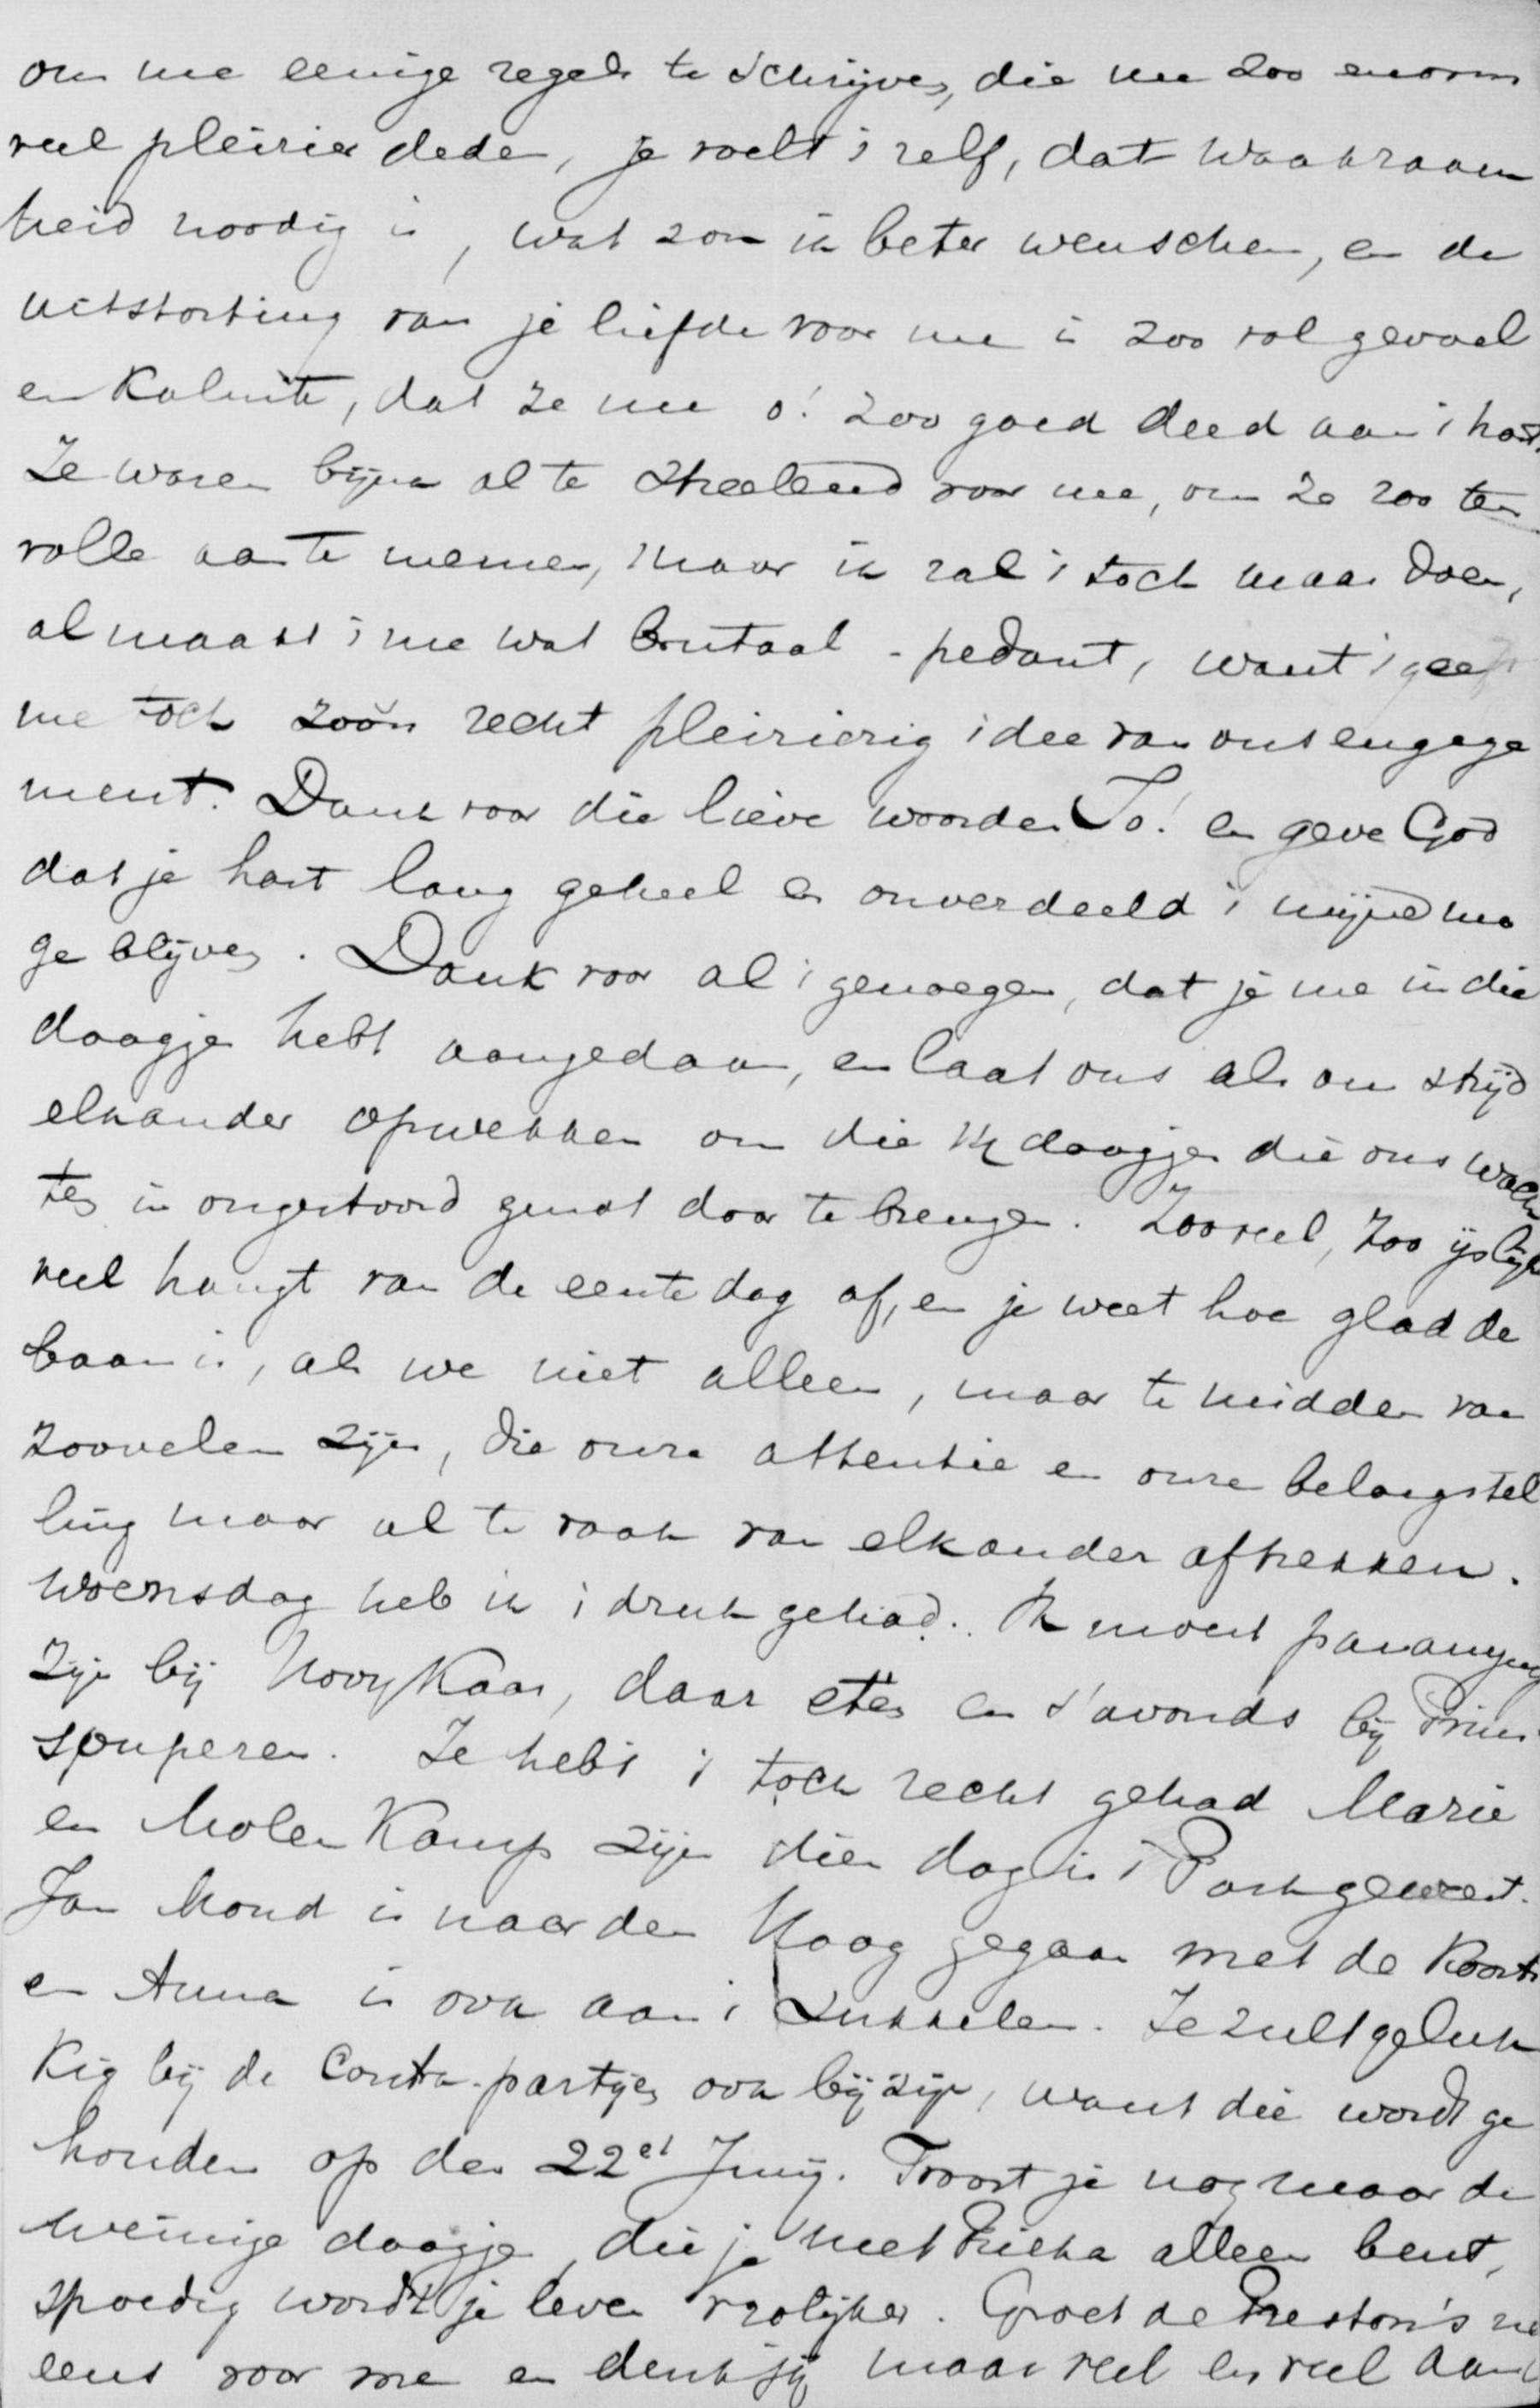 om me eenige regels te schrijven, die me zoo enorm
veel pleizier deden, je voelt 't zelf, dat waakzaam
heid noodig is, wat zou ik beter wenschen, en de
uitstorting van je liefde voor me is zoo vol gevoel
en kalmte, dat ze me o! zoo goed deed aan 't hart.
Ze waren bijna al te streelend voor me, om ze zoo ten
volle aan te nemen, maar ik zal 't toch maar doen,
al maakt 't me wat brutaal - pedant, want 't geeft
me toch zoo'n recht pleizierig idee van ons engage
ment. Dank voor die lieve woorden To! en geve God
dat je hart lang geheel en onverdeeld 't mijne mo
ge blijven. Dank voor al 't genoegen, dat je me in die
daagjes hebt aangedaan, en laat ons als om strijd
elkander opwekken om die daagjes die ons wach
ten in ongestoord genot door te brengen. Zooveel, zoo ijslijk
veel hangt van de eerste dag af, en je weet hoe glad de
baan is, als we niet alleen, maar te midden van
zoovelen zijn, die onze attentie en onze belangstel
ling maar al te vaak van elkander aftrekken.
Woensdag heb ik 't druk gehad. Ik moest paranymf
zijn bij Hooykaas, daar eten en s'avonds bij Prins
souperen. Je hebt 't toch recht gehad Marie
en Molenkamp zijn dien dag in 't Park geweest.
Jan is naar den Haag gegaan met de koorts
en Anna is ook aan 't sukkelen. Je zult geluk
kig bij de Contra-partijen ook bij zijn, want die wordt ge
houden op den 22et Junij. Troost je nog maar de
weinige daagjes, die je met alleen bent,
spoedig wordt je leven vrolijker. Groet de Preston's
eens voor me en denk jij maar veel en veel aan